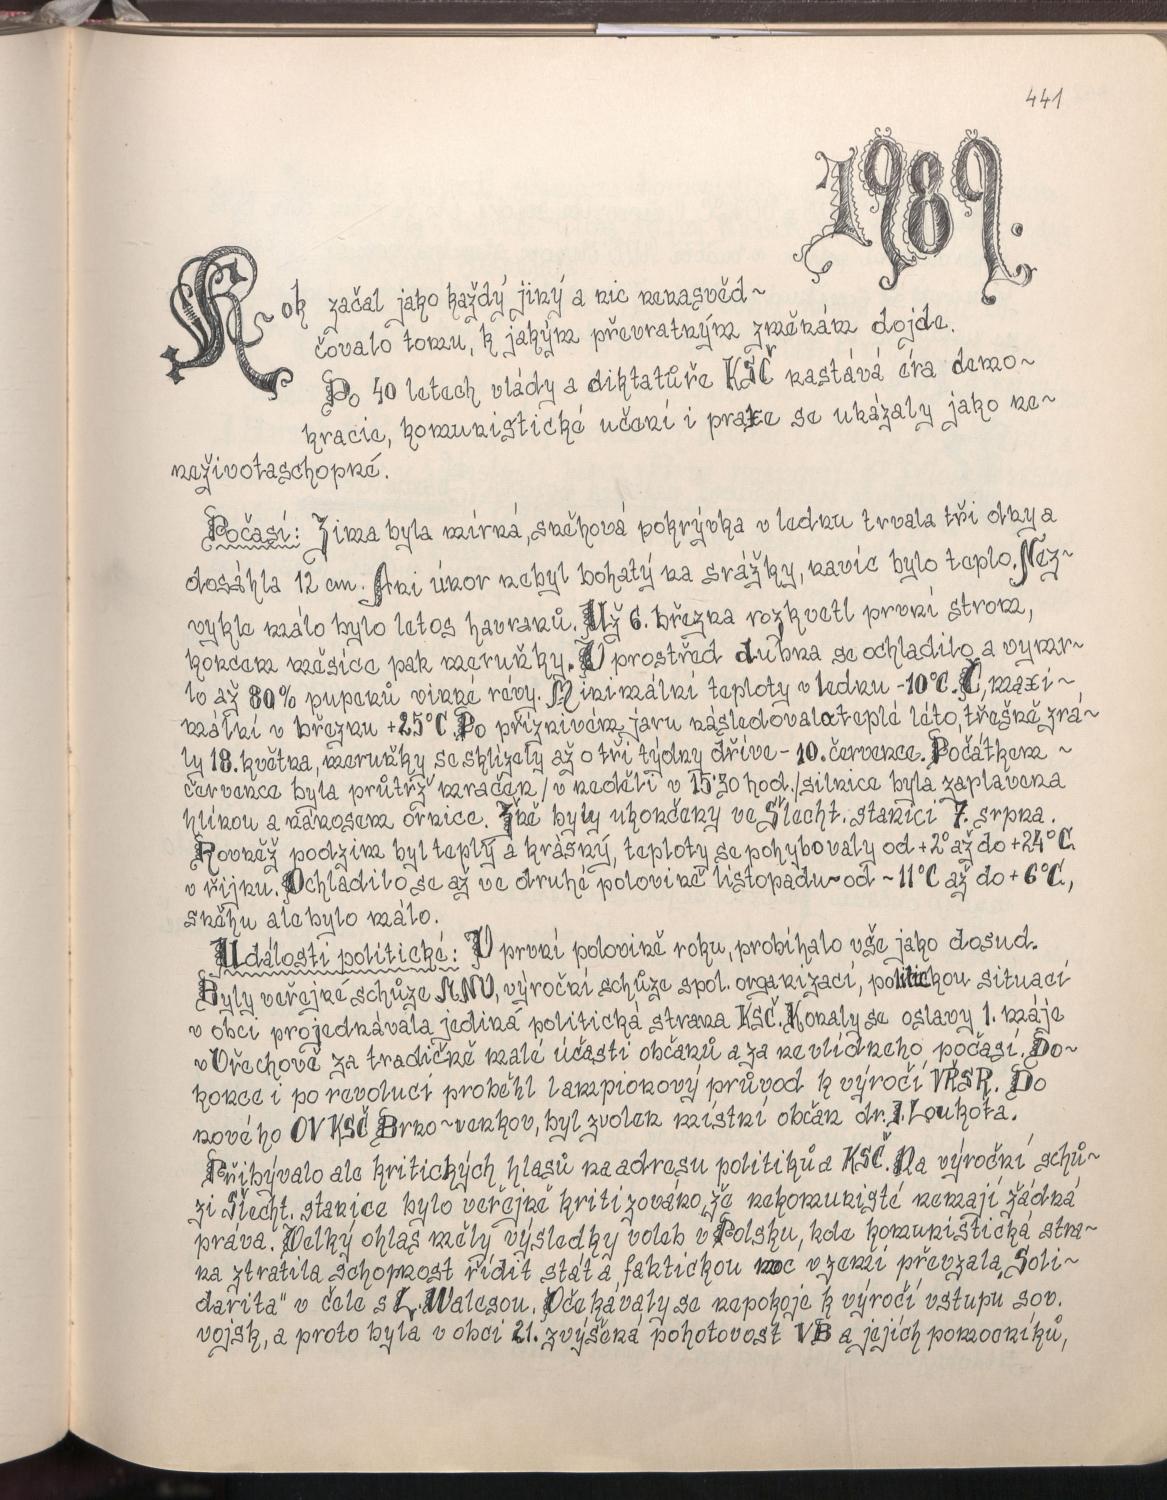 441
1989.
Rok začal jako každý jiný a nic nenasvěd~
čovalo tomu, k jakým převratným změnám dojde.
Po 40 letech vlády a diktatůře KSČ nastává éra demo~
kracie, komunistické učení i praxe se ukázaly jako ne~
neživotaschopné.
Počasí: Zima byla mírná, sněhová pokrývka v lednu trvala tři dny a
dosáhla 12 cm. Ani únor nebyl bohatý na srážky, navíc bylo teplo. Nez~
vykle málo bylo letos havranů. Už 6. března rozkvetl první strom,
koncem měsíce pak meruňky. V prostřed dubna se ochladilo a vymr~
lo až 80% pupenů vinné révy. Minimální teploty v lednu -10°C. Č, maxi~
mální v březnu +25°C. Po příznivém jaru následovalo teplé léto, třešně zrá~
ly 18. května, meruňky se sklízely až o tři týdny dříve - 10. července. Počátkem ~
července byla průtrž mračen / v neděli v 15.30 hod./ silnice byla zaplavena
hlínou a nánosem ornice. Žně byly ukončeny ve Šlecht. stanici 7. srpna.
Rovněž podzim byl teplý a krásný, teploty se pohybovaly od +2° až do +24°C
v říjnu. Ochladilo se až ve druhé polovině listopadu ~ od ~ 11°C až do + 6°C,
sněhu ale bylo málo.
Události politické: V první polovině roku, probíhalo vše jako dosud.
Byly veřejné schůze MNV, výroční schůze spol. organizací, politickou situaci
v obci projednávala jediná politická strana KSČ. Konaly se oslavy 1. máje
v Ořechově za tradičně malé účasti občanů a za nevlídného počasí. Do~
konce i po revoluci proběhl lampionový průvod k výročí VŘSR. Do
nového OV KSČ Brno~venkov, byl zvolen místní občan dr. J. Loukota.
Přibývalo ale kritických hlasů na adresu politiků a KSČ. Na výroční schů~
zi Šlecht. stanice bylo veřejně kritizováno, že nekomunisté nemají žádná
práva. Velký ohlas měly výsledky voleb v Polsku, kde komunistická stra~
na ztratila schopnost řídit stát a faktickou moc v zemi převzala „Soli~
darita" v čele s L. Walesou. Očekávaly se nepokoje k výročí vstupu sov.
vojsk, a proto byla v obci 21. zvýšená pohotovost VB a jejích pomocníků,